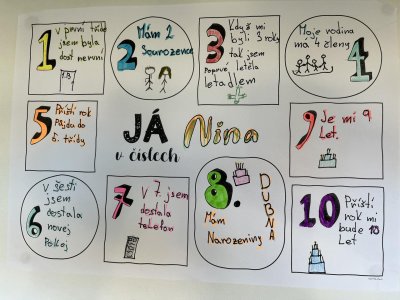 1
v první třídě
jsem byla
dost nervní
1.B
2
Mám 2
Sourozence
3
Když mi
byli 3 roky
tak jsem
Poprvé letěla
letadlem
Moje rodina
má 4 členy
4
5
Příští rok
Půjdu do
5. třídy
JÁ Nina
v číslech
9
Je mi 9
Let.
6
V šesti
jsem
dostala
novej
Pokoj
7
V 7. jsem
dostala
telefon
8.
DUBNA
Mám
Narozeniny
10
Příští
rok mi
bude 10
Let